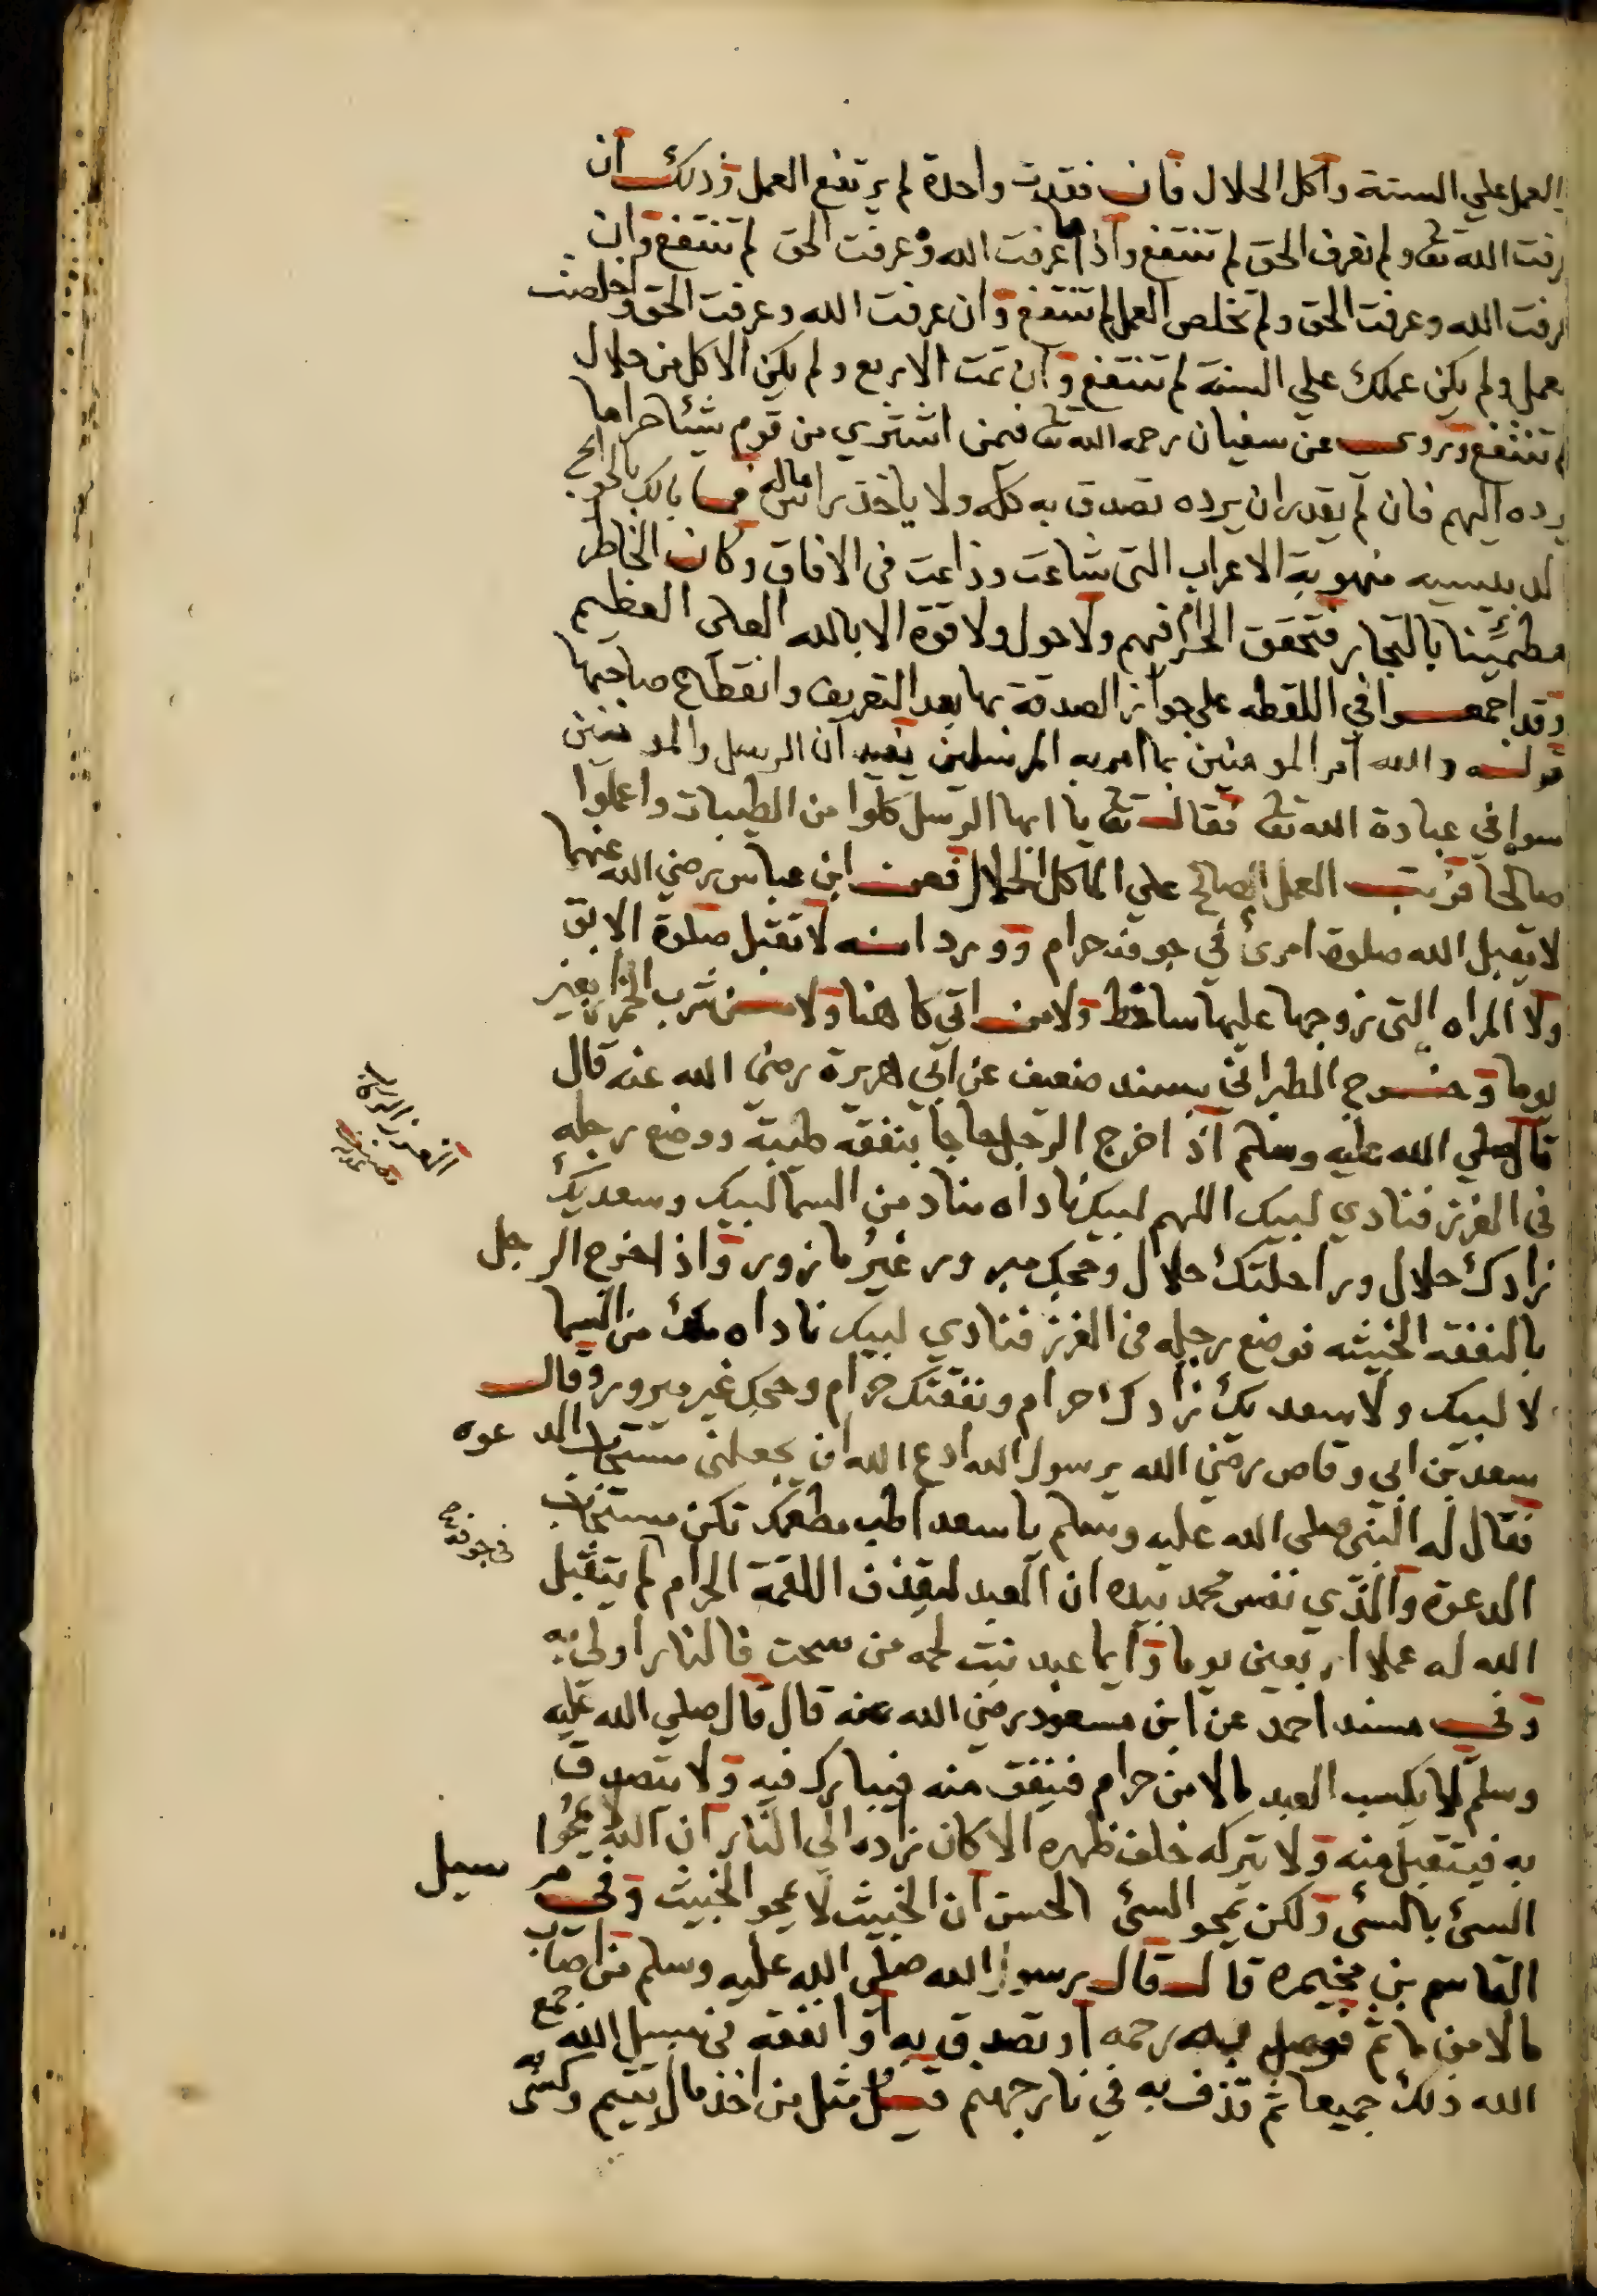 العمل علي السنة واكل الحلال فان فقدت واحدة لم يرتفع العمل وذلك ان
رفت الله تعا ولم تعرف الحق لم تنتفع واذا عرفت الله وعرفت الحق لم تنتفع وان
رفت الله وعرفت الحق ولم تخلص العمل لم تنتفع وان عرفت الله وعرفت الحق واخلصت
عمل ولم يكن عملك علي السنة لم تنتفع وان تمت الاربع ولم يكن الاكل من حلال
لم تنتفع وروي عن سفيان رحمه الله تعا فيمن اشتري من قوم شيئا حراما
يرده اليهم فان لم يقدر ان يرده تصدق به كله ولا ياخذ راس ماله فما بالك بالحوايج
منهوبة الاعراب التي شاعت وذاعت في الافاق وكان الخاطر
مطمئنا بالتجار فتحقق الحرام فيهم ولا حول ولا قوة الا بالله العلي العظيم
وقد اجمعوا في اللقطه علي جواز الصدقة بها بعد التعريف وانقطاع صاحبها
قوله والله امر المومنين بما امر به المرسلين يفيد ان الرسل والمومنين
سوا في عبادة الله تعا فقال تعا يا ايها الرسل كلوا من الطيبات واعملوا
صالحا فرتب العمل الصالح علي الماكل الحلال فعن ابن عباس رضي الله عنهما
لا يقبل الله صلوة امرئ في جوفه حرام وورد انه لا تقبل صلوة الابق
ولا المراه التي زوجها عليها ساخط ولا من اتي كاهنا ولا من شرب الخمر اربعين
يوما وخرج الطبراني بسند ضعيف عن ابي هريرة رضي الله عنه قال
قال صلي الله عليه وسلم اذا خرج الرجل حاجا بنفقه طيبة ووضع رجله
في الغرز فنادي لبيك اللهم لبيك ناداه مناد من السما لبيك وسعديك
زادك حلال وراحلتك حلال وحجك مبرور غير مازور واذا خرج الرجل
بالنفقه الخبيثه فوضع رجله في الغرز فنادي لبيك ناداه ملك من السما
لا لبيك ولا سعديك زادك حرام ونفقتك حرام وحجك غير مبرور وقال
سعد بن ابي وقاص رضي الله يرسول الله ادع الله ان يجعلني مستجاب الدعوه
فقال له النبي صلى الله عليه وسلم يا سعد اطب مطعمك تكن مستجاب
الدعوة والذي نفس محمد بيده ان العبد ليقذف اللقمة الحرام لم يتقبل
الله له عملا اربعين يوما وايما عبد نبت لحمه من سحت فالنار اولي به
وفي مسند احمد عن ابن مسعود رضي الله عنه قال قال صلي الله عليه
وسلم لا يكسب العبد مالا من حرام فينفق منه فيبارك فيه ولا يتصدق
به فيتقبل منه ولا يتركه خلف ظهره الا كان زاده الي النار ان الله لا يمحوا
السئ بالسئ ولكن يمحو السئ الحسن ان الخبيث لا يمحو الخبيث وفي مرسيل
القاسم بن مخيمره قال قال رسول الله صلي الله عليه وسلم من اصاب
مالا من ماثم فوصل به رحمه او تصدق به او انفقه في سبيل الله جمع
الله ذلك جميعا ثم قذف به في نار جهنم قيل مثل من اخذ مال يتيم وكسى به
الغرز الركاب
في جوفه صح